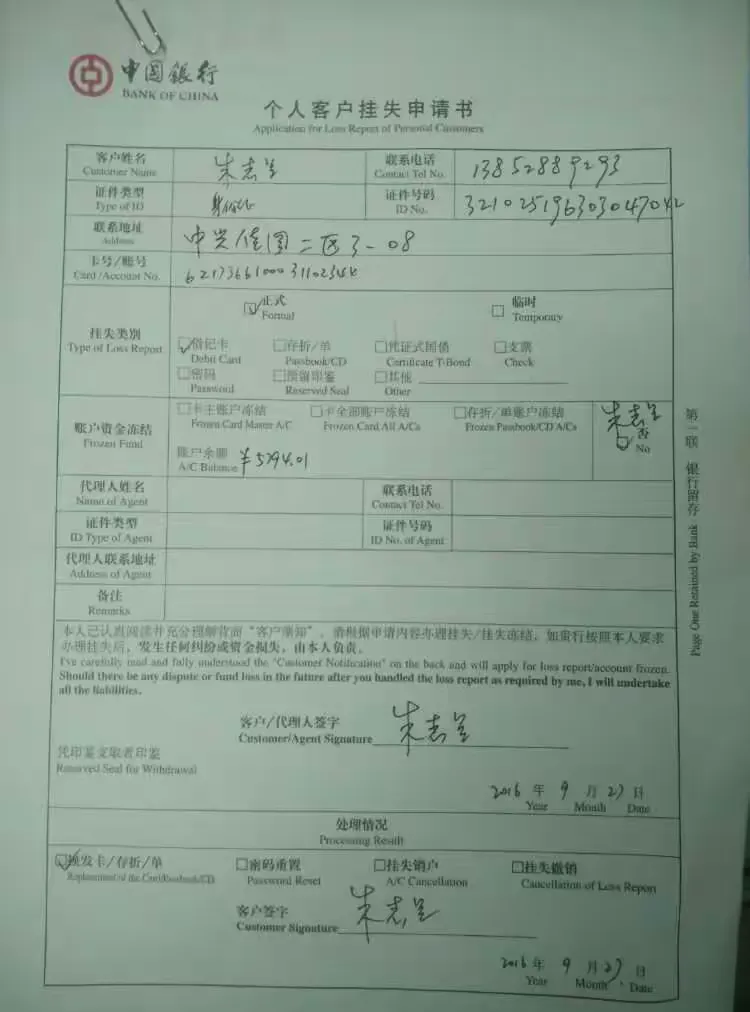 中国银行
BANK OF CHINA
个人客户挂失申请书
Application for Loss Report of Personal Customers
客户姓名 朱志 联系电话 13852889293
Customer Name Contact Tel No.
证件类型 身份证 证件号码 321025196303047042
Type of ID ID No.
联系地址 中兴佳园二区3-08
Address
卡号/账号
Card /Account No.
☑正式 □临时
Formal Temporary
挂失类别
Type of Loss Report
☑借记卡 □存折/单 □凭证式国债 □支票
Debit Card Passbook/CD Certificate T-Bond Check
□密码 □预留印鉴 □其他
Password Reserved Seal Other
账户资金冻结
Frozen Fund
□卡主账户冻结 □卡全部账户冻结 □存折/单账户冻结 朱志
Frozen Card Master A/C Frozen Card All A/Cs Frozen Passbook/CD A/Cs
☑否
No
账户余额 ¥5294.01
A/C Balance
代理人姓名 联系电话
Name of Agent Contact Tel No.
证件类型 证件号码
ID Type of Agent ID No. of Agent
代理人联系地址
Address of Agent
备注
Remarks
本人已认真阅读并充分理解背面“客户须知”,请根据申请内容办理挂失/挂失冻结,如贵行按照本人要求
办理挂失后,发生任何纠纷或资金损失,由本人负责。
I've carefully read and fully understood the "Customer Notification" on the back and will apply for loss report/account frozen.
Should there be any dispute or fund loss in the future after you handled the loss report as required by me, I will undertake
all the liabilities.
客户/代理人签字 朱志
Customer/Agent Signature
凭印鉴支取者印鉴
Reserved Seal for Withdrawal
2016 年 9 月 27 日
Year Month Date
处理情况
Processing Result
☑换发卡/存折/单 □密码重置 □挂失销户 □挂失撤销
Replacement of the Card/Passbook/CD Password Reset A/C Cancellation Cancellation of Loss Report
客户签字 朱志
Customer Signature
2016 年 9 月 27 日
Year Month Date
第一联 银行留存 Page One Retained by Bank